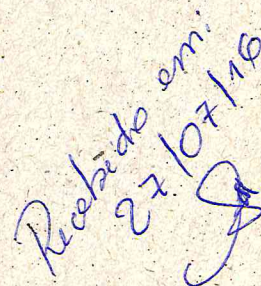 Recebido em:
27/07/16